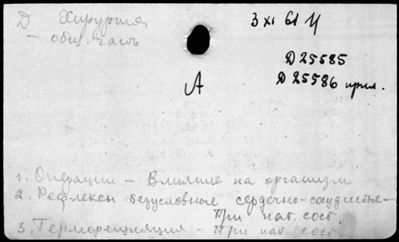 Д Хирургия
- общ. часть
3 XI 61 Ц
Д 25585
Д 25586 прил.
А
1. Операции - Влияние на организм
2. Рефлексы безусловные сердечно-сосудистые-
При пат. сост.
3. Терморегуляция - При пат. сост.